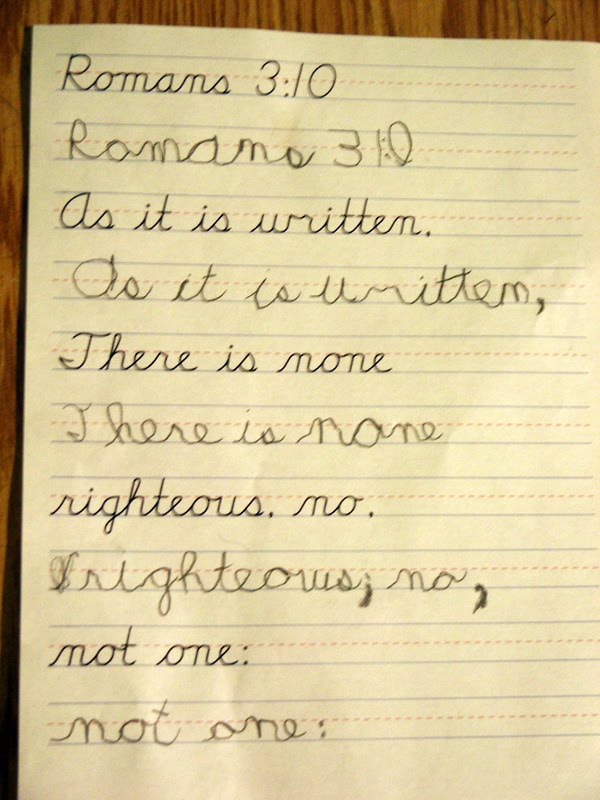 Romans 3:10
Romans 3:10
As it is written.
As it is written,
There is none
There is none
righteous. no.
righteous; no,
not one:
not one: